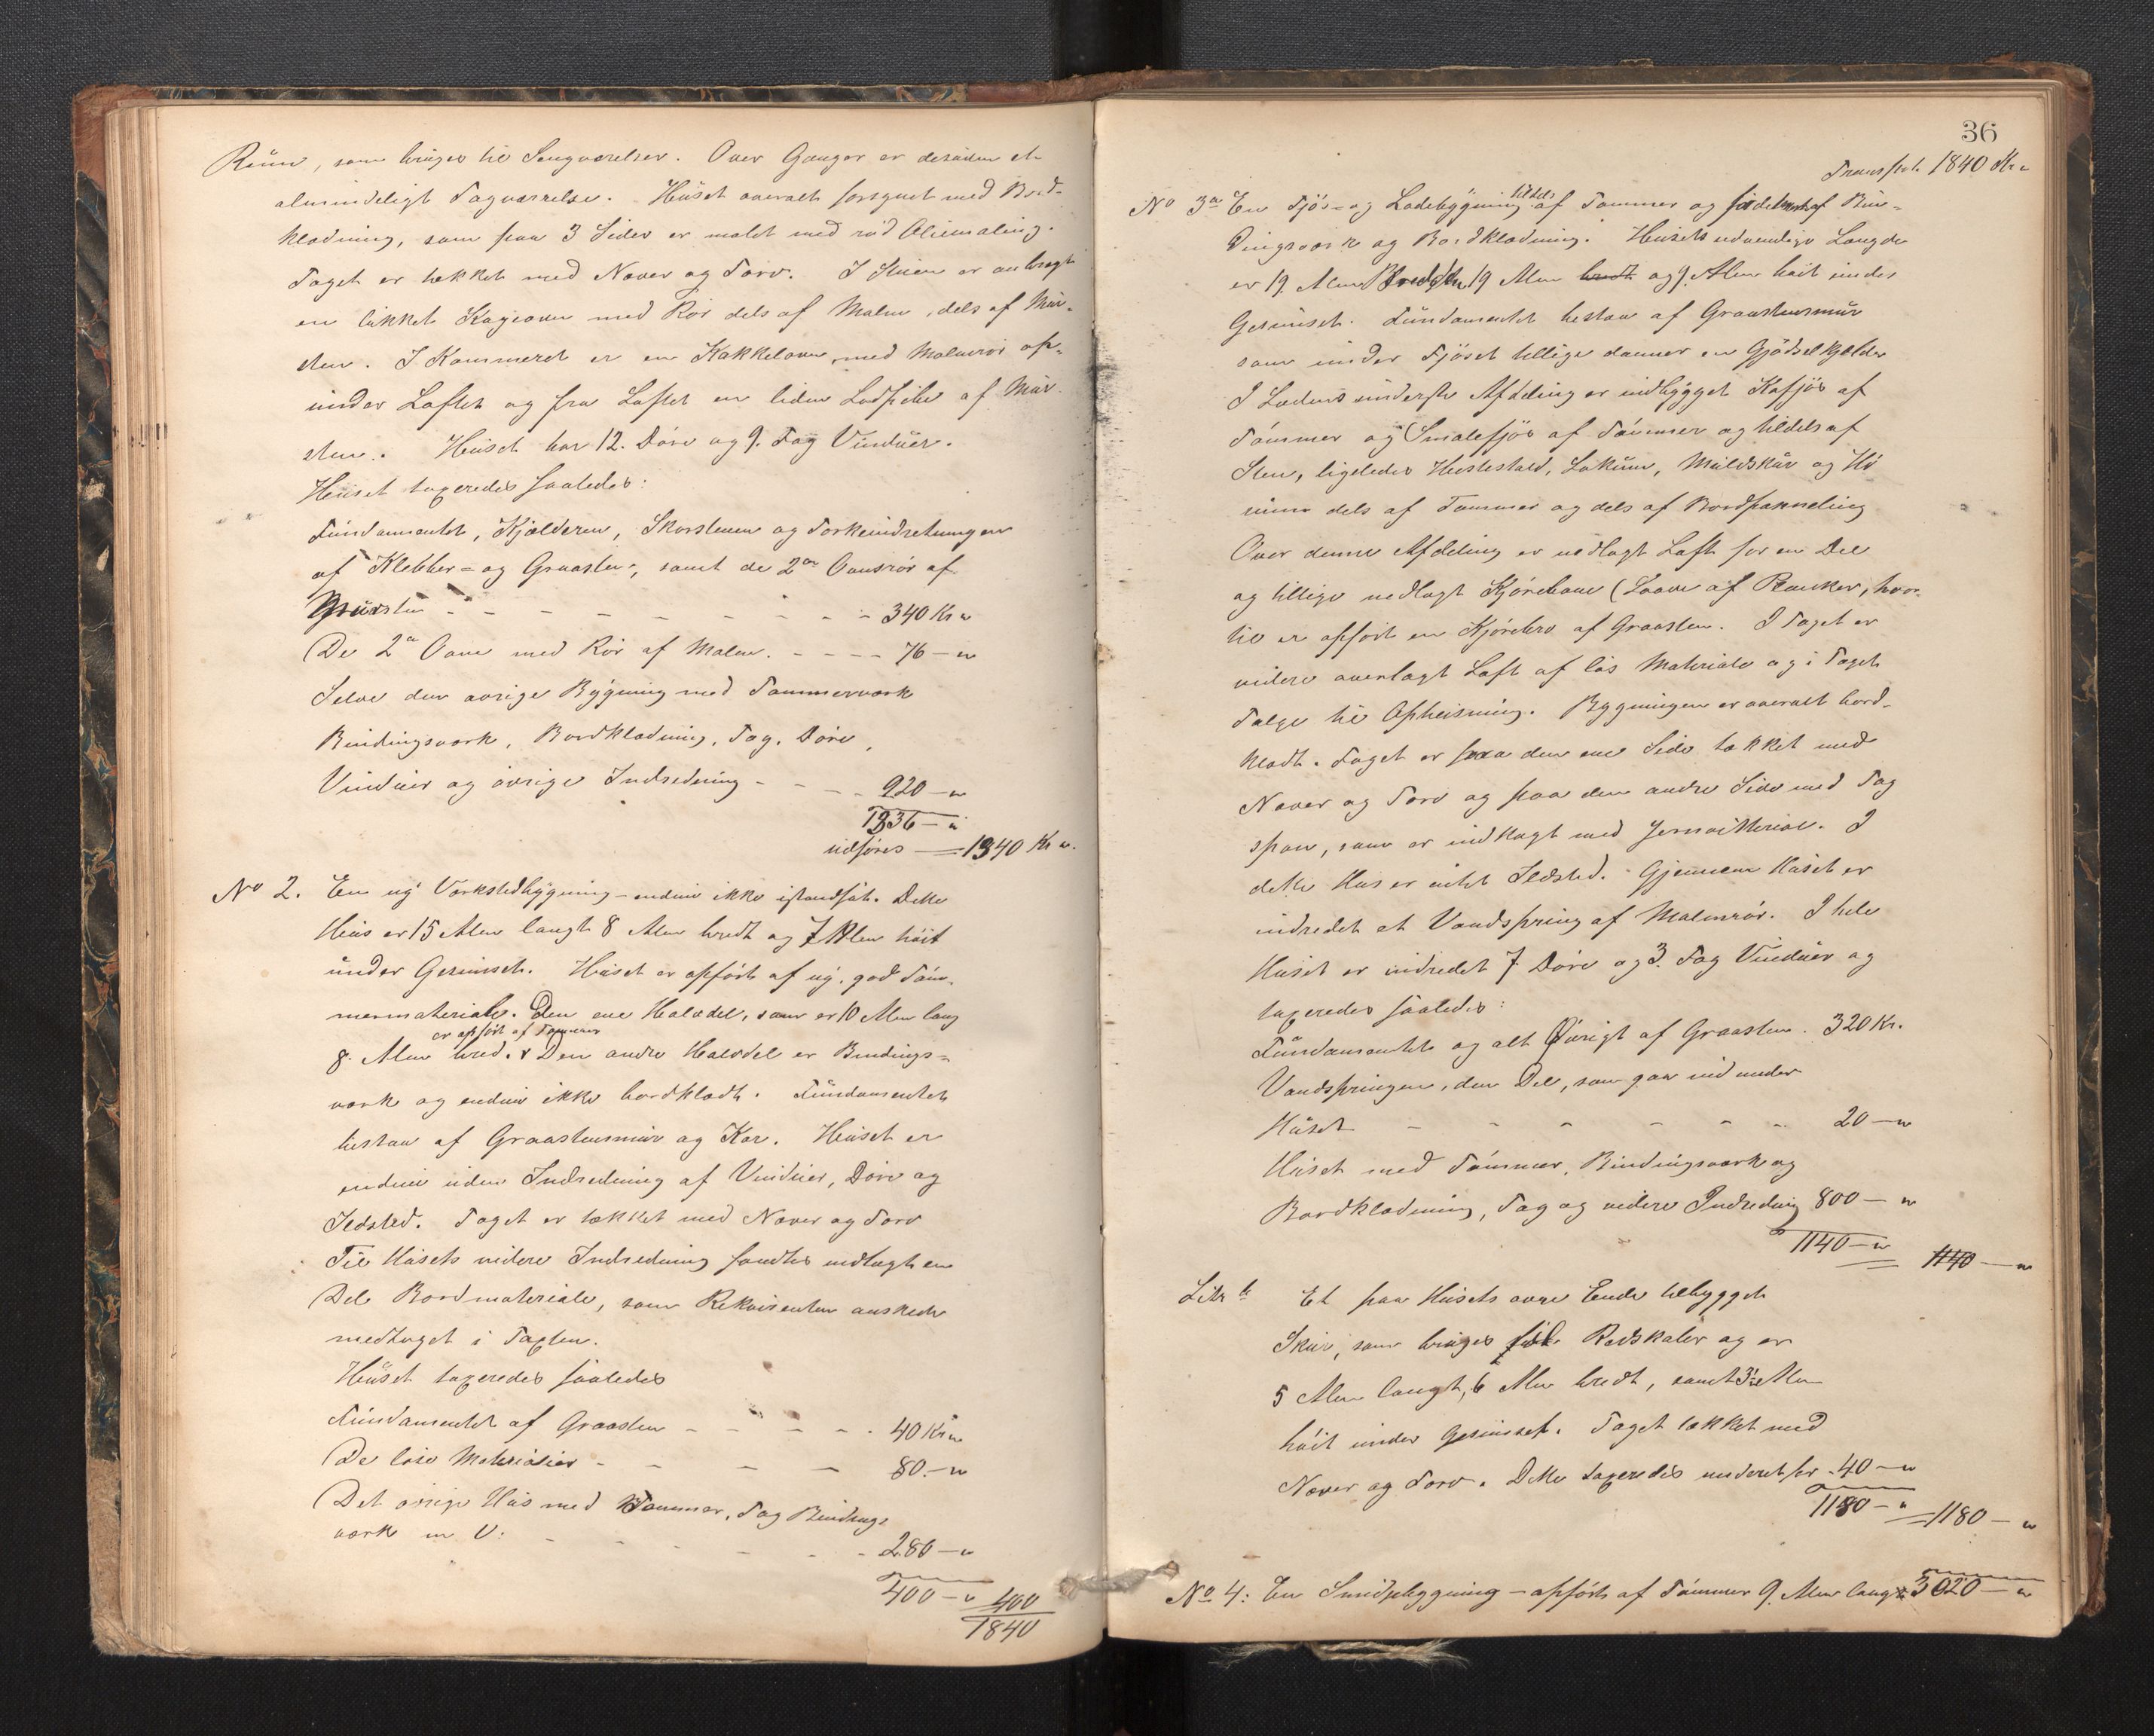 Rüm, som brüges til Sengværelser. Over Ganger er desüden et
almindeligt Tagværelse. Hüset overalt forsynet med Bord-
klædning, som paa 3 Sider er malet med rød Oliemaling.
Taget er tækket med Næver og Törv. I Stüen er anbragt
en lükket Kogeovn med Rör dels af Malm, dels af Mür-
sten. I Kammeret er en Kakkelovn, med Malmrör op-
ünder Loftet og fra Loftet en liden Lodpibe af Mür-
sten. Hüset har 12. Döre og 9. Fag Vindüer.
Hüset taxeredes saaledes:
Fündamentet, Kjælderen, Skorstenen og Tørkeindretningen
af Klebber- og Graasten, samt de 2de Ovnsrör af
Mürsten - - - - - - - 340 Kr "
De 2de Ovne med Rör af Malm. - - - - 76 — "
Selve den övrige Bygning med Tømmerværk
Bindingsværk, Bordklædning, Tag, Döre,
Vindüer og övrige Indredning - - - - 920 — "
1336 — "
üdføres — 1340 Kr ".
No 2. En ny Værkstedbygning – endnü ikke istandsat. Dette
Hüs er 15 Alen langt 8 Alen bredt og 7 Alen høit
ünder Gesimset. Hüset er opfört af ny, god Töm-
mermateriale. Den ene Halvdel, som er 10 Alen lang
er opfört af Tømmer
8. Alen bred. Den andre Halvdel er Bindings-
værk og endnü ikke bordklædt. Fündamentet
bestaar af Graastensmür og Kar. Hüset er
endnü üden Indredning af Vindüer, Döre og
Ildsted. Taget er tækket med Næver og Torv
Til Hüsets videre Indredning fandtes indlagt en
Del Bordmateriale, som Rekvirenten önskede
medtaget i Taxten.
Hüset taxeredes saaledes
Fündamentet af Graasten - - - - - 40 Kr "
De løse Materialier - - - - 80. — "
Det övrige Hüs med Tømmer, Tag Bindings
værk m V: - - - - - - 280 — "
400 — " 400
1840
36
Transport 1840 Kr "
No 3a En Fjös- og Ladebygning tildels af Tømmer og tildels af Bin-
dingsværk og Bordklædning. Hüsets udvendige Længde
er 19. Alen Bredden 19 Alen bredt og 9. Alen høit ünder
Gesimset. Fündamentet bestaar af Graastensmür
som ünder Fjöset tillige danner en Gjødselkjælder
I Ladens ünderste Afdeling er indbygget Kofjös af
Tömmer og Smalefjös af Tömmer og tildels af
Sten, ligeledes Hestestald, Loküm, Müldskür og Hö
rüm dels af Tømmer og dels af Bordpanneling
Over denne Afdeling er nedlagt Loft for en Del
og tillige nedlagt Kjørebane (Laave af Planker, hvor-
til er opfört en Kjörebro af Graasten. I Taget er
videre overlagt Loft af løs Materiale og i Taget
Talge til Opheisning. Bygningen er overalt bord-
klædt. Taget er paa den ene Side tækket med
Næver og Torv og paa den andre Side med Tag
spaan, som er indkogt med Jernvitteriol. I
dette Hüs er intet Ildsted. Gjennem Hüset er
indredet et Vandspring af Malmrör. I hele
Hüset er indredet 7 Döre og 3. Fag Vindüer og
taxeredes saaledes:
Fündamentet og alt Øvrigt af Graasten. 320 Kr.
Vandspringen, den Del, som gaar ind under
Hüset - - - - - - 20 — "
Hüset med Tömmer, Bindingsværk og
Bordklædning, Tag og videre Indredning 800 — "
1140 — " 1140 — "
Litr b Et paa Hüsets øvre Ende tilbygget
Skür, som brüges til Redskaber og er
5 Alen langt, 6 Alen bredt, samt 3½ Alen
høit ünder Gesimset. Taget tækket med
Næver og Torv. Dette taxeredes underet for - 40 — "
1180 — " 1180 — "
No 4: En Smidjebygning – opfört af Tömmer 9. Alen lang 3020 — "